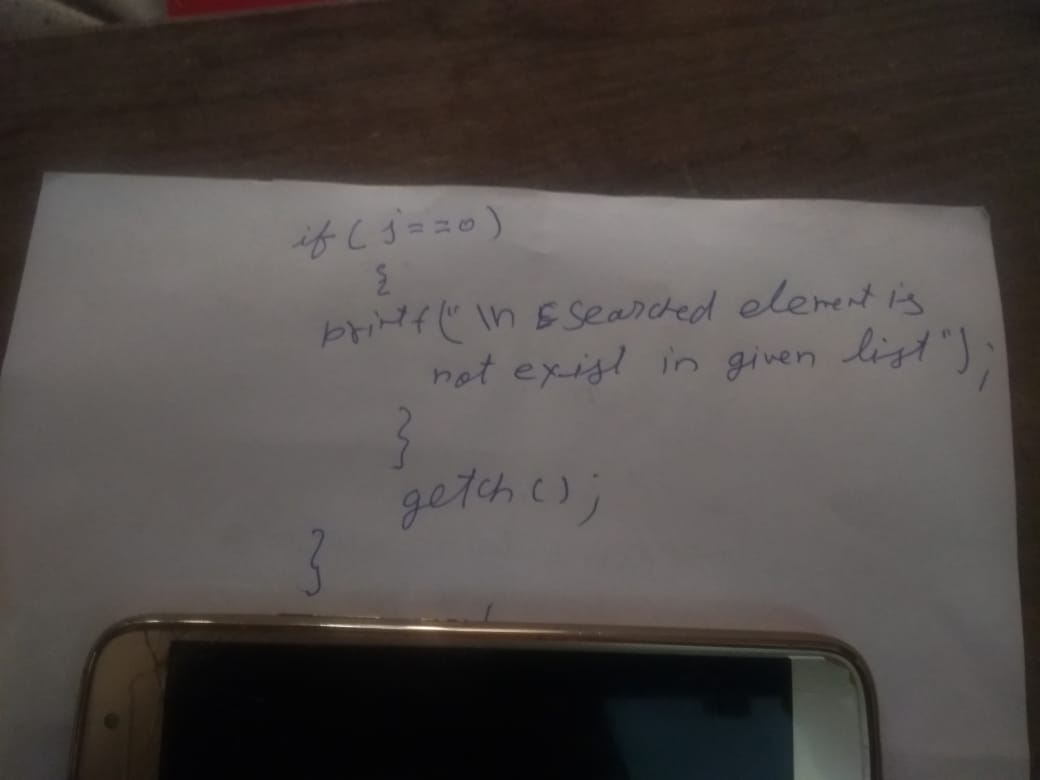 if ( j==0)
{
printf(" \n Searched element is
not exist in given list");
}
getch();
}